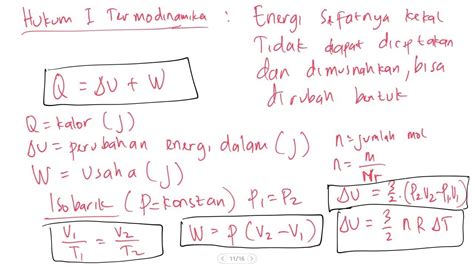 Hukum I Termodinamika :
Energi sifatnya kekal
Tidak dapat diciptakan
dan dimusnahkan, bisa
dirubah bentuk
Q = ΔU + W
Q = kalor (J)
ΔU = perubahan energi dalam (J)
W = Usaha (J)
n = jumlah mol
n = m/Mr
Isobarik (P = konstan) P₁ = P₂
V₁/T₁ = V₂/T₂
W = P (V₂ - V₁)
ΔU = 3/2 . (P₂V₂ - P₁V₁)
ΔU = 3/2 n R ΔT
11/16